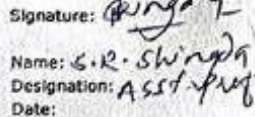 Signature:
Name: S.R. Shinada
Designation: Asst. Prof
Date: